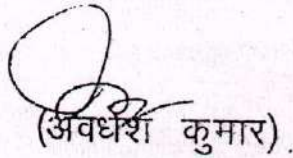 (अवधेश कुमार)